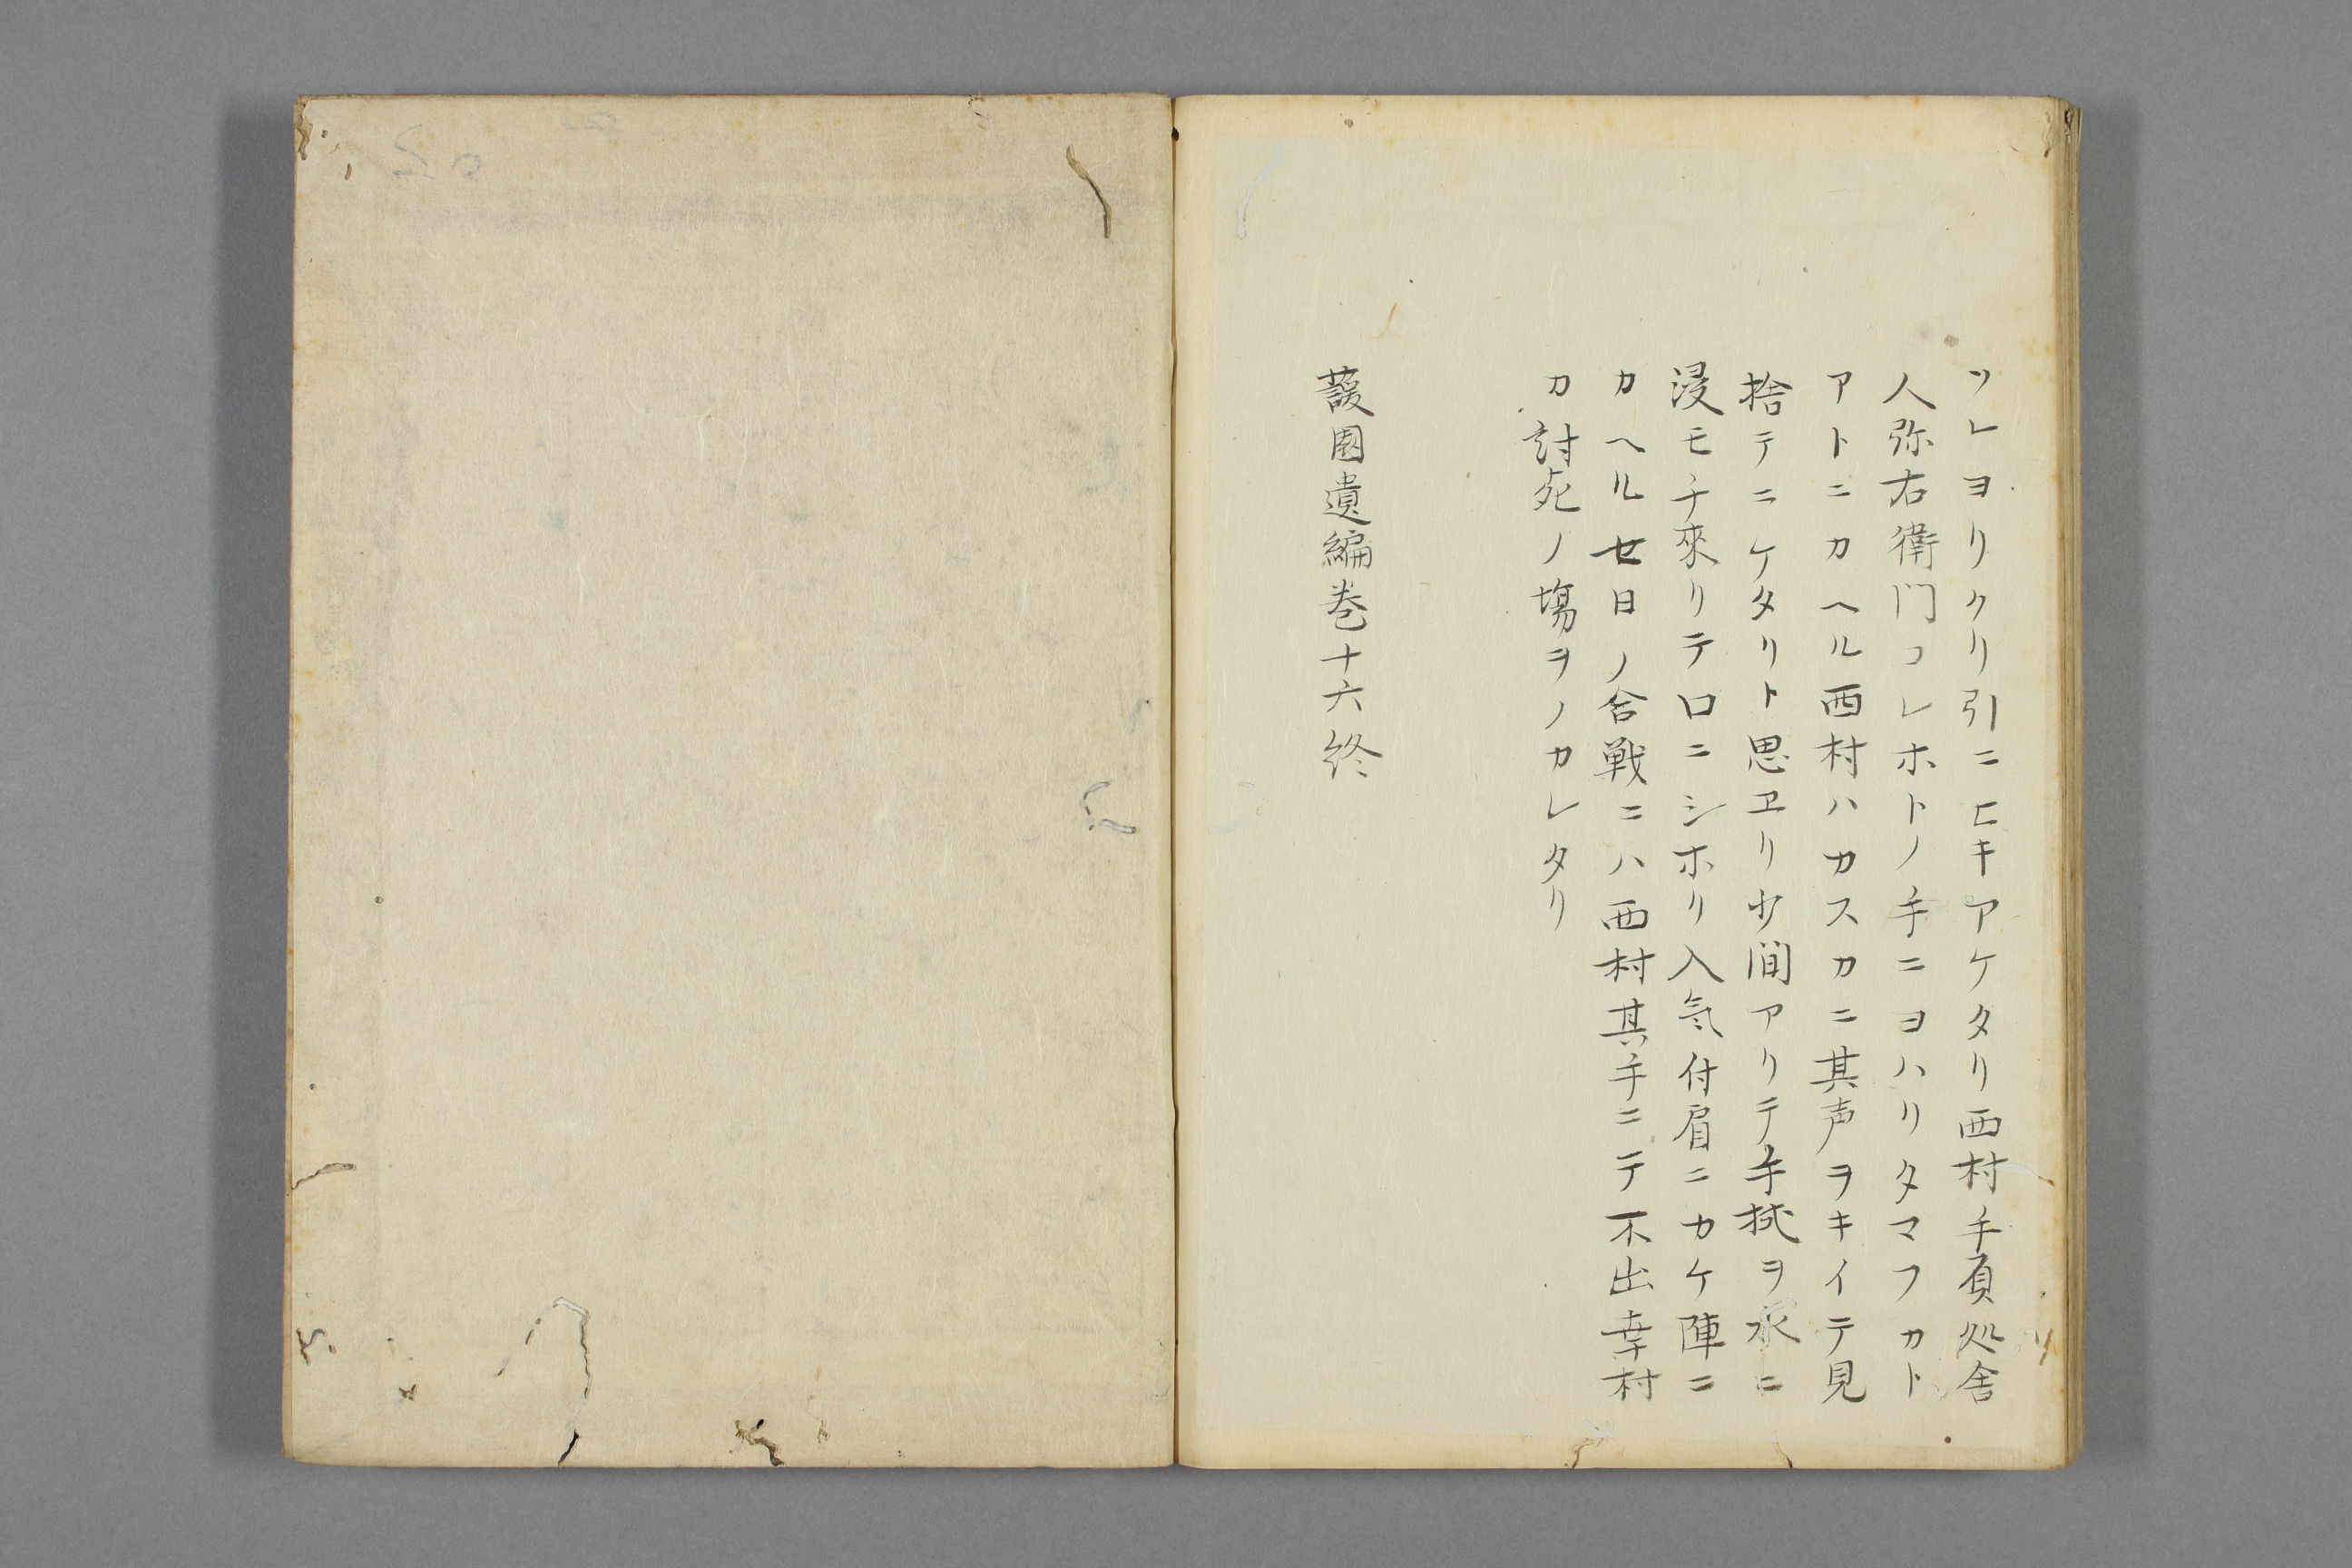 ソレヨリクリ引ニヒキアケタリ西村手負処舎
人弥右衛門コレホトノ手ニヨハリタマフカト
アトニカヘル西村ハカスカニ其声ヲキイテ見
捨テニケタリト思ヱリ少間アリテ手拭ヲ水ニ
浸モチ來リテ口ニシホリ入気付肩ニカケ陣ニ
カヘル七日ノ合戦ニハ西村其手ニテ不出幸村
カ討死ノ塲ヲノカレタリ
蘐園遺編巻十六終